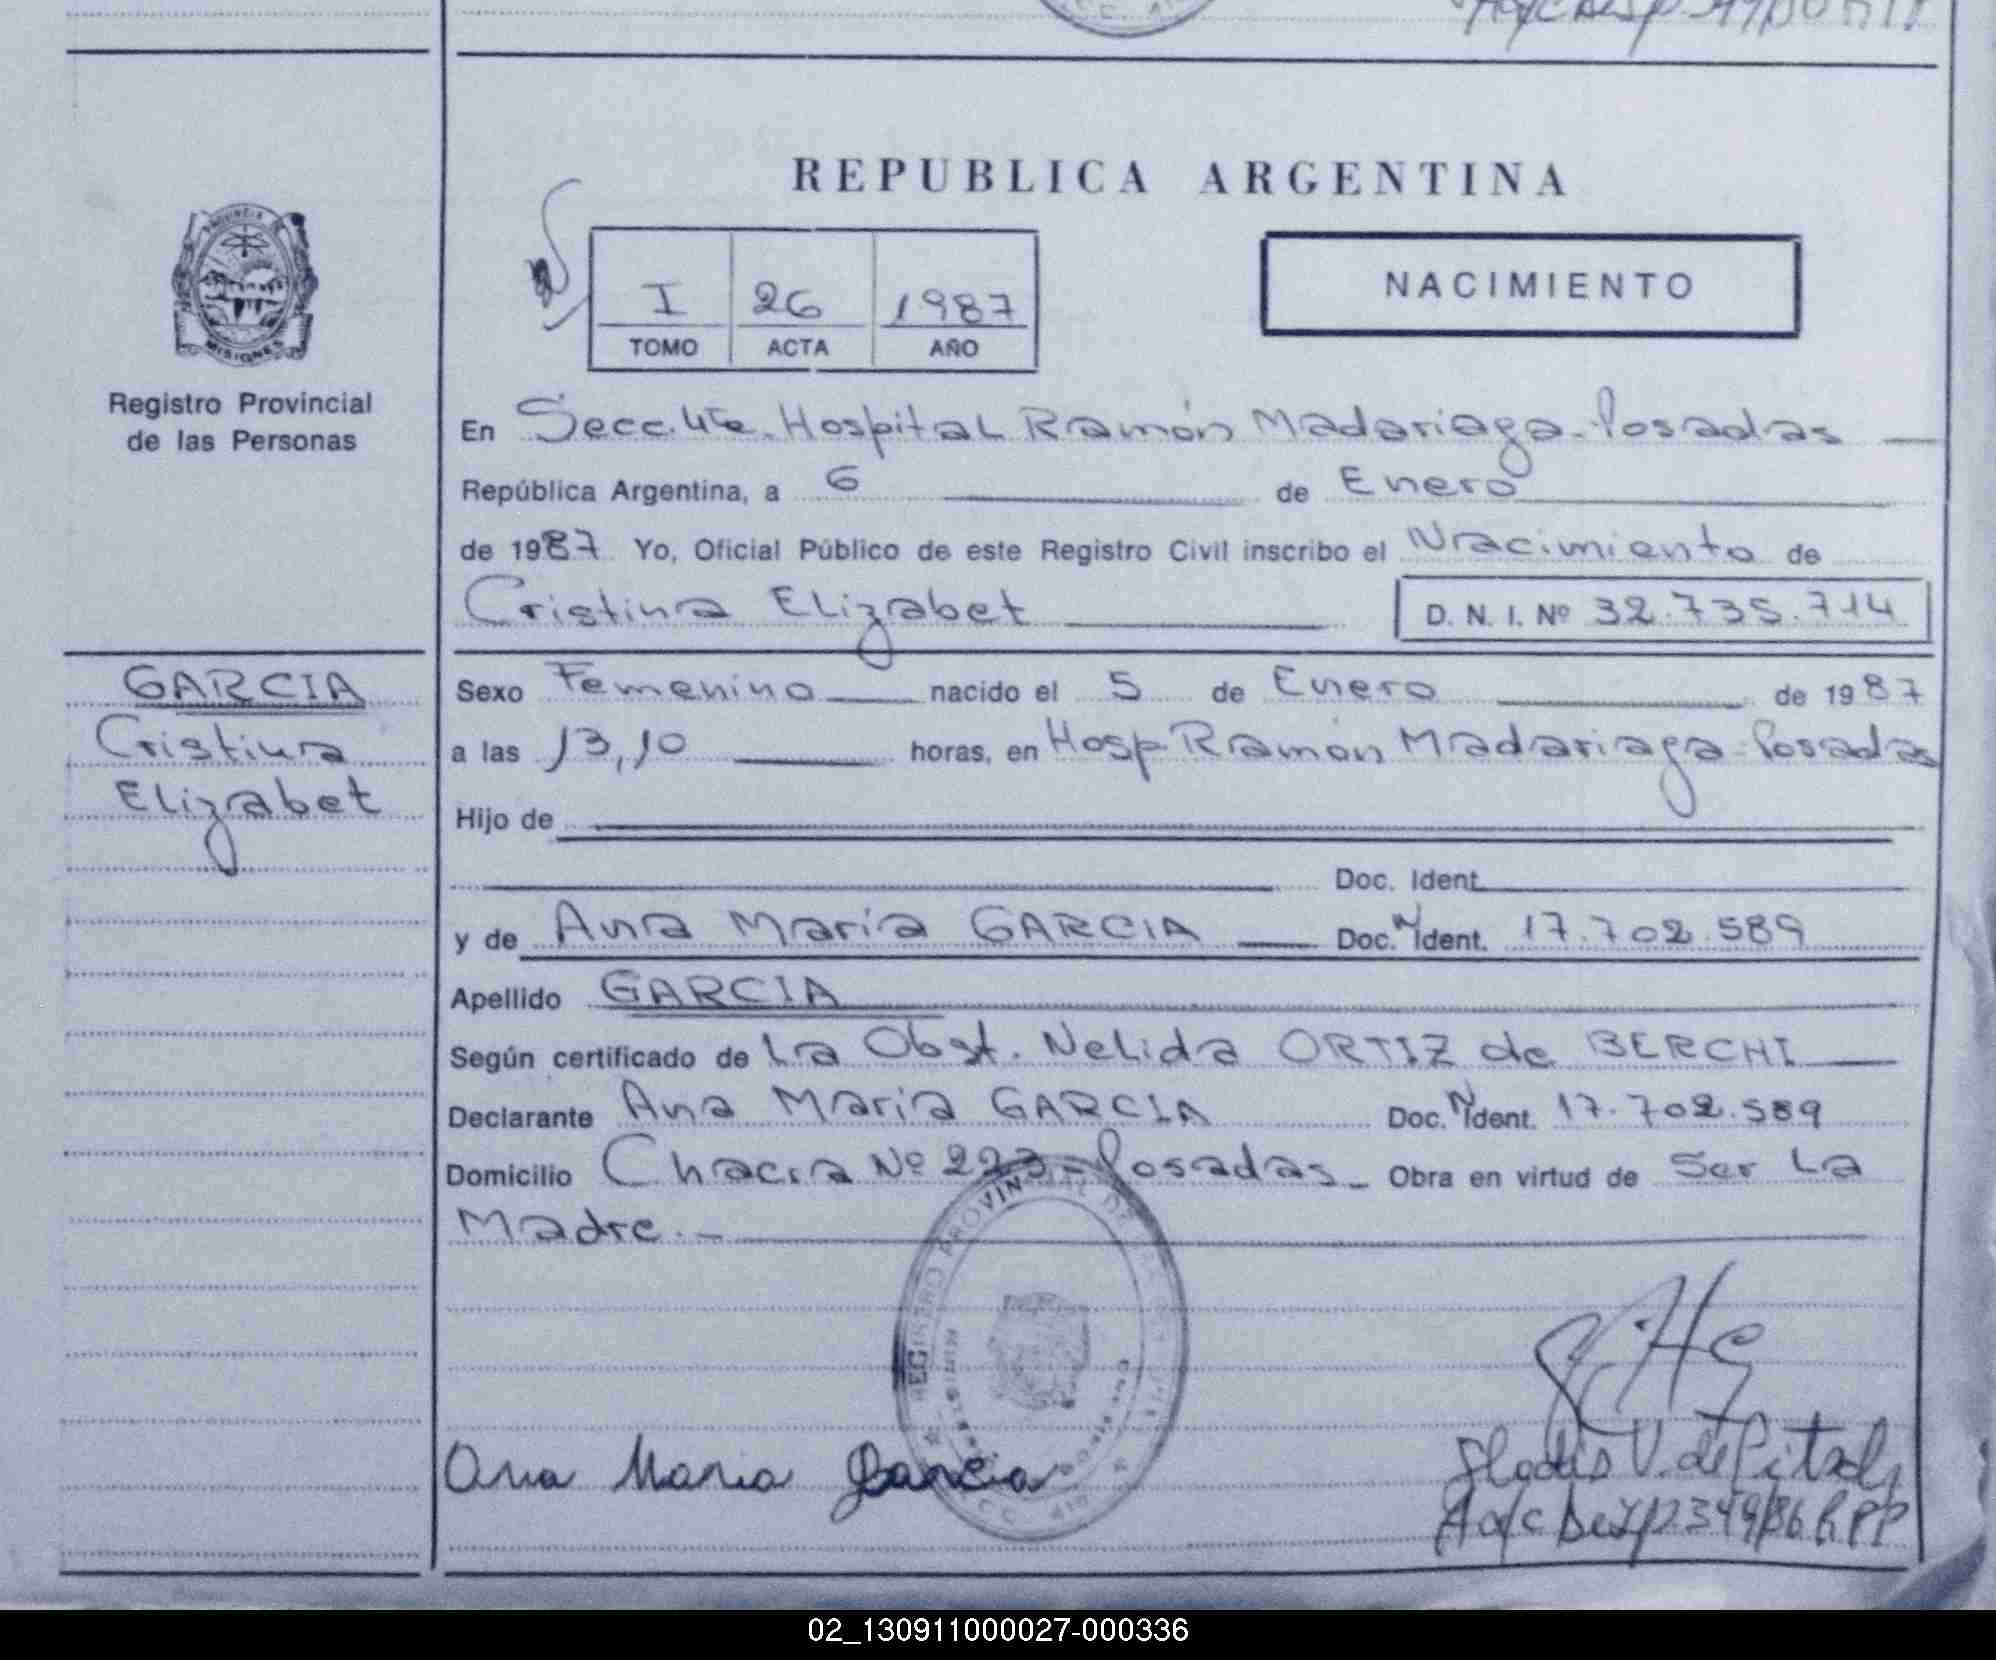 REPUBLICA ARGENTINA
I 26 1987
TOMO ACTA AÑO
NACIMIENTO
PROVINCIA
MISIONES
Registro Provincial
de las Personas
En Secc. 4ta. Hospital Ramón Madariaga - Posadas
República Argentina, a 6 de Enero
de 1987 Yo, Oficial Público de este Registro Civil inscribo el Nacimiento de
Cristina Elizabet D. N. I. Nº 32.735.714
GARCIA
Cristina
Elizabet
Sexo Femenino nacido el 5 de Enero de 1987
a las 13,10 horas, en Hosp Ramón Madariaga - Posadas
Hijo de
Doc. Ident.
y de Ana María GARCIA Doc. N Ident. 17.702.589
Apellido GARCIA
Según certificado de La Obst. Nelida ORTIZ de BERCHI
Declarante Ana María GARCIA Doc. N Ident. 17.702.589
Domicilio Chacra Nº 223 - Posadas - Obra en virtud de Ser La
Madre. -
REGISTRO PROVINCIAL DE
Ana Maria Garcia
Gladis V. de
A/c Desp 349/86 RPP
02_130911000027-000336